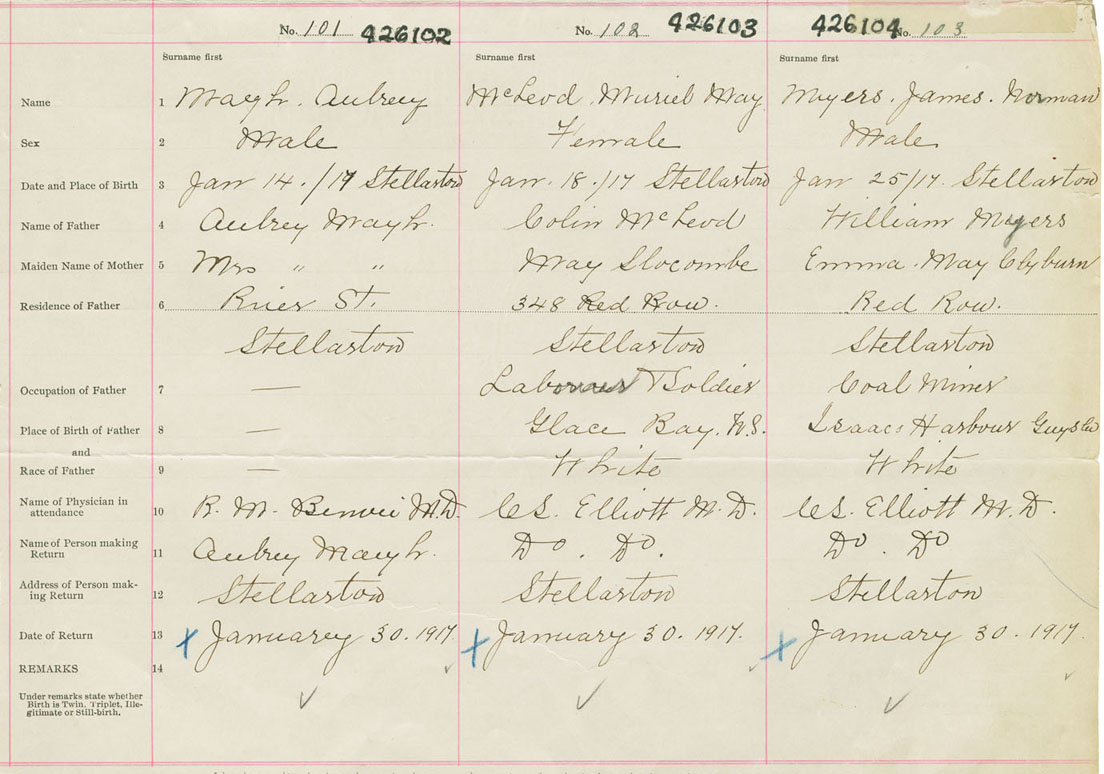 No. 101 426102 No. 102 426103 426104 No. 103
Surname first Surname first Surname first
Name 1 Mayh. Aubrey McLeod Muriel May Myers. James. Norman
Sex 2 Male Female Male
Date and Place of Birth 3 Jan 14./17 Stellarton Jan. 18./17 Stellarton Jan 25/17. Stellarton
Name of Father 4 Aubrey Mayh. Colin McLeod William Myers
Maiden Name of Mother 5 Mrs " " May Slocombe Emma. May Clyburn
Residence of Father 6 River St. 348 Red Row. Red Row.
Stellarton Stellarton Stellarton
Occupation of Father 7 — Labourer Soldier Coal Miner
Place of Birth of Father 8 — Glace Bay. N.S. Isaacs Harbour Guysbo
and
Race of Father 9 — White White
Name of Physician in
attendance 10 R. M. Benvie M.D. C.S. Elliott M.D. C.S. Elliott M.D.
Name of Person making
Return 11 Aubrey Mayh. Do. Do. Do. Do
Address of Person mak-
ing Return 12 Stellarton Stellarton Stellarton
Date of Return 13 Januarey 30. 1917. January 30. 1917. January 30. 1917.
REMARKS 14
Under remarks state whether
Birth is Twin, Triplet, Ille-
gitimate or Still-birth.